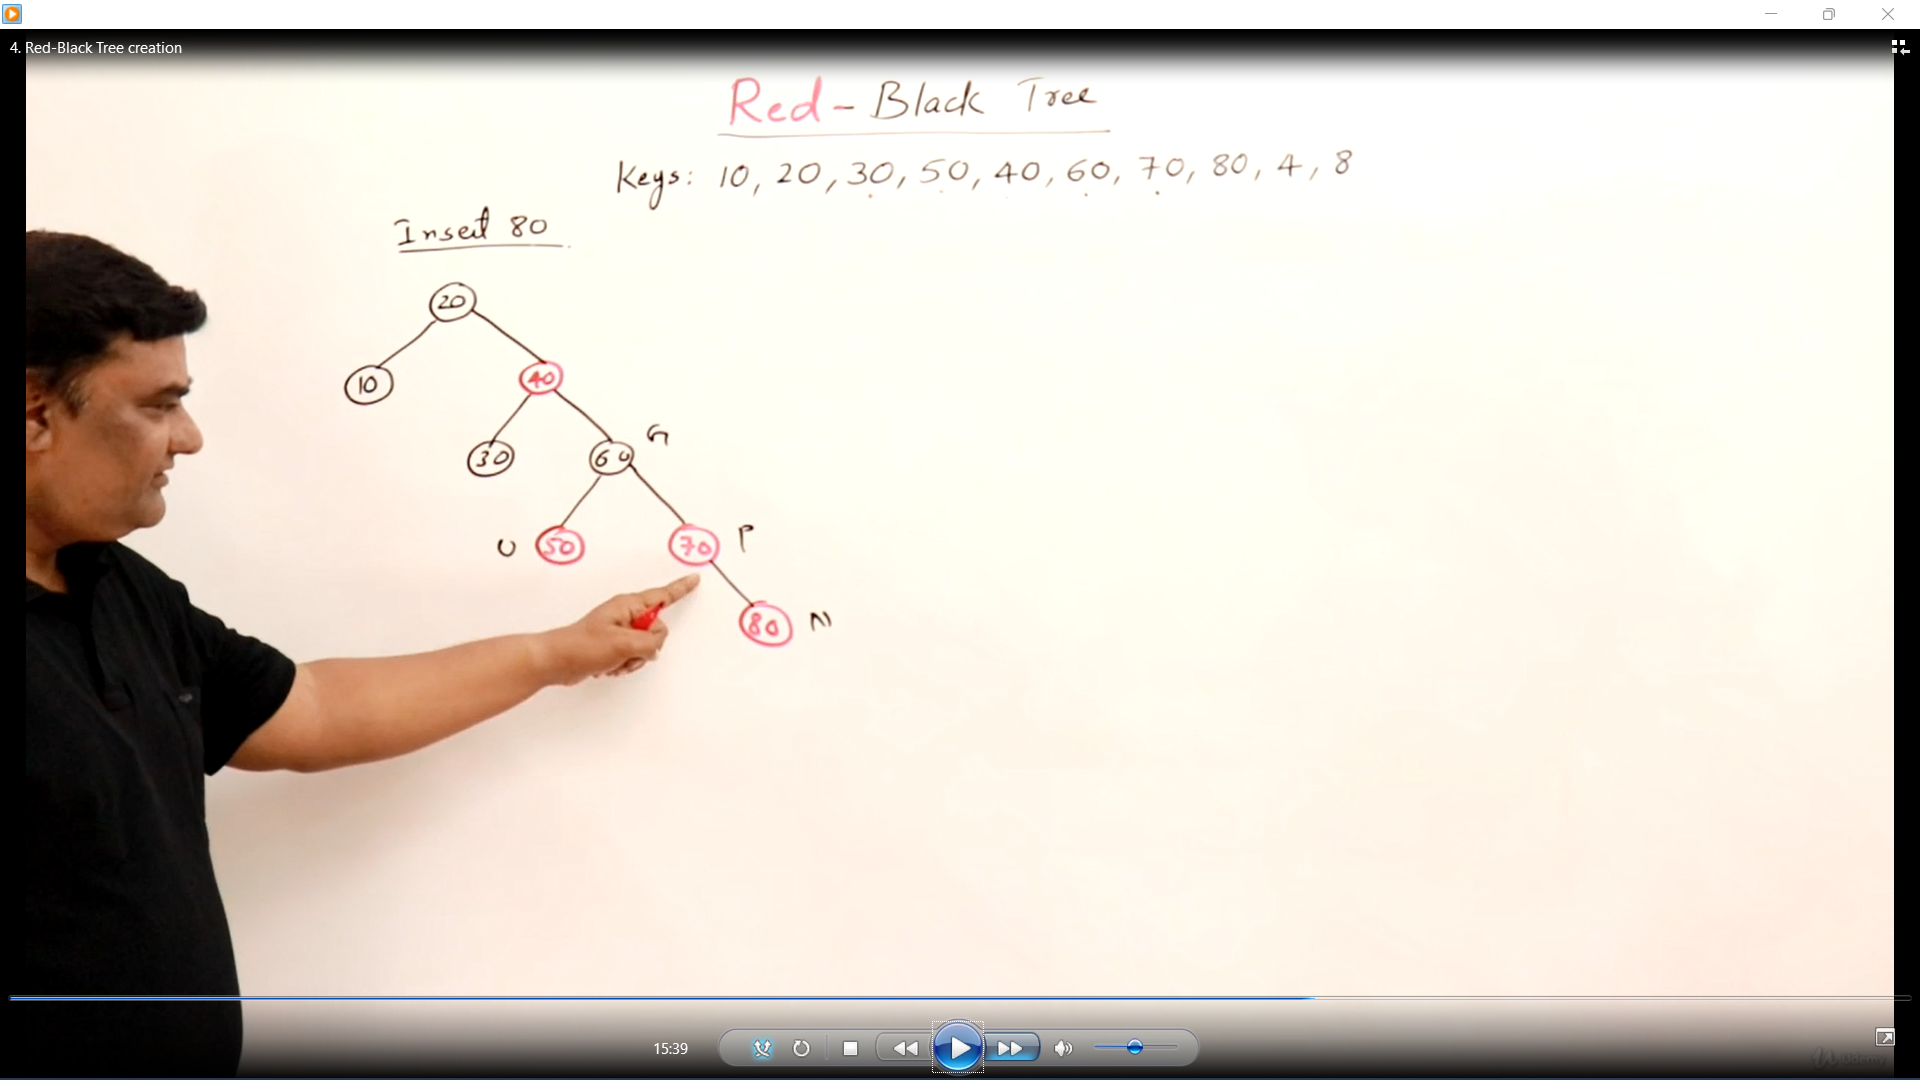 4. Red-Black Tree creation
Red - Black Tree
Keys: 10, 20, 30, 50, 40, 60, 70, 80, 4, 8
Insert 80
20
10
40
G
30
60
U
50
70
P
80
N
15:39
Udemy